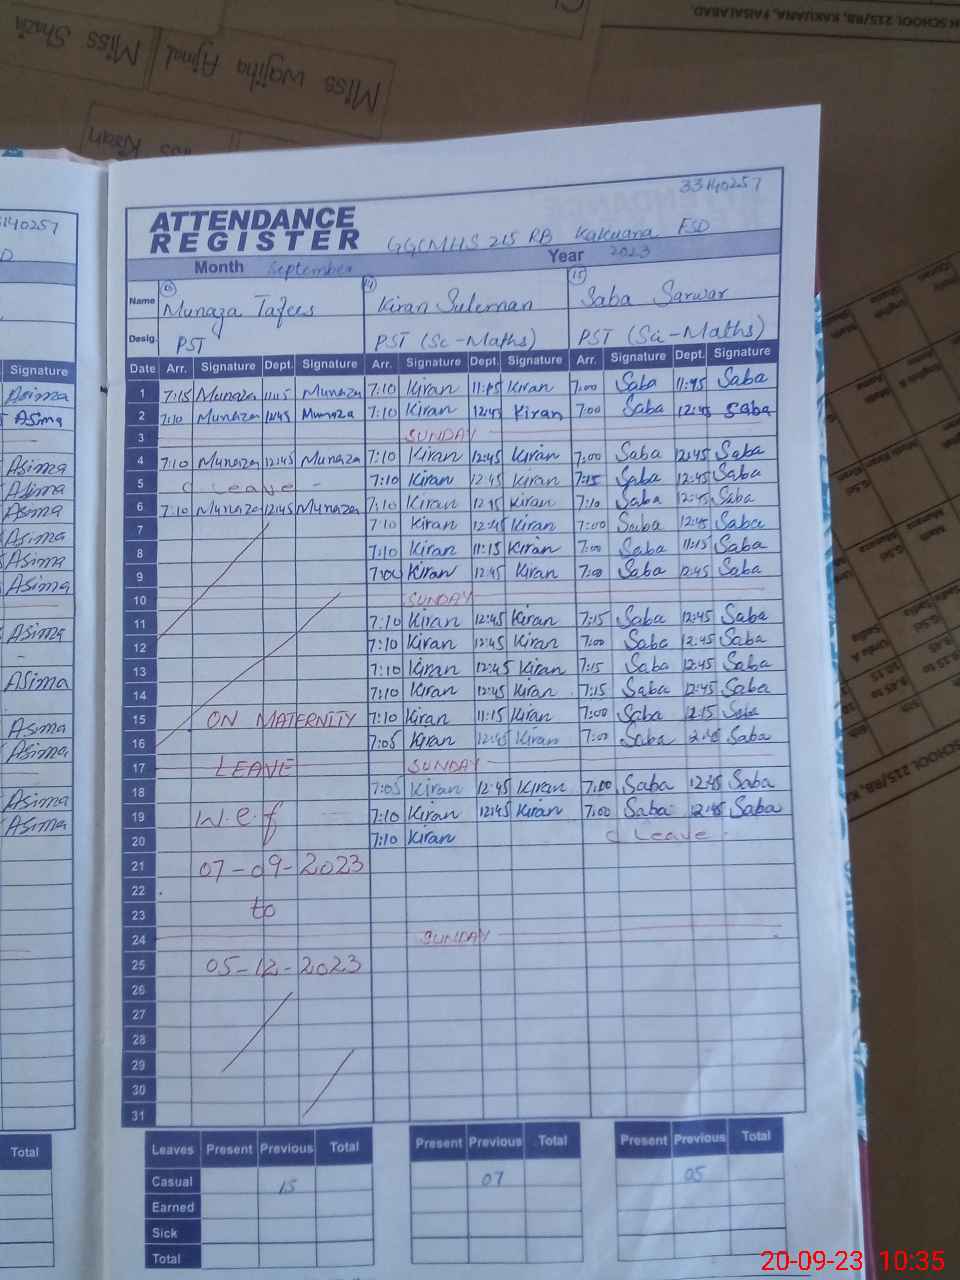 SCHOOL 215/RB, KAKUANA, FAISALABAD.
Miss Shazia
Miss Wajiha Ajmal
Miss Kiran
33140257
ATTENDANCE
REGISTER GGCMHS 215 RB Kakuana FSD
Month September Year 2023
Name 13 Munaza Tafees 14 Kiran Suleman 15 Saba Sarwar
Desig. PST PST (Sc-Maths) PST (Sci-Maths)
Date Arr. Signature Dept. Signature Arr. Signature Dept. Signature Arr. Signature Dept. Signature
1 7:15 Munaza 11:15 Munaza 7:10 Kiran 11:15 Kiran 7:00 Saba 11:45 Saba
2 7:10 Munaza 12:45 Munaza 7:10 Kiran 12:45 Kiran 7:00 Saba 12:45 Saba
3 SUNDAY
4 7:10 Munaza 12:45 Munaza 7:10 Kiran 12:45 Kiran 7:00 Saba 12:45 Saba
5 C Leave - 7:10 Kiran 12:45 Kiran 7:15 Saba 12:45 Saba
6 7:10 Munaza 12:45 Munaza 7:10 Kiran 12:45 Kiran 7:10 Saba 12:45 Saba
7 7:10 Kiran 12:45 Kiran 7:00 Saba 12:45 Saba
8 7:10 Kiran 11:15 Kiran 7:00 Saba 11:15 Saba
9 7:00 Kiran 12:45 Kiran 7:00 Saba 12:45 Saba
10 SUNDAY
11 7:10 Kiran 12:45 Kiran 7:15 Saba 12:45 Saba
12 7:10 Kiran 12:45 Kiran 7:00 Saba 12:45 Saba
13 7:10 Kiran 12:45 Kiran 7:15 Saba 12:45 Saba
14 7:10 Kiran 12:45 Kiran 7:15 Saba 12:45 Saba
15 ON MATERNITY 7:10 Kiran 11:15 Kiran 7:00 Saba 12:15 Saba
16 7:05 Kiran 12:45 Kiran 7:00 Saba 12:45 Saba
17 LEAVE SUNDAY
18 7:05 Kiran 12:45 Kiran 7:00 Saba 12:45 Saba
19 W.e.f 7:10 Kiran 12:45 Kiran 7:00 Saba 12:45 Saba
20 7:10 Kiran C Leave
21 07-09-2023
22
23 to
24 SUNDAY
25 05-12-2023
26
27
28
29
30
31
Leaves Present Previous Total Present Previous Total Present Previous Total
Casual 15 07 05
Earned
Sick
Total
Signature
Asima
Asima
Asima
Asima
Asima
Asima
Asima
Asima
Asima
Asima
Asima
Asima
Asima
Asima
Total
20-09-23 10:35